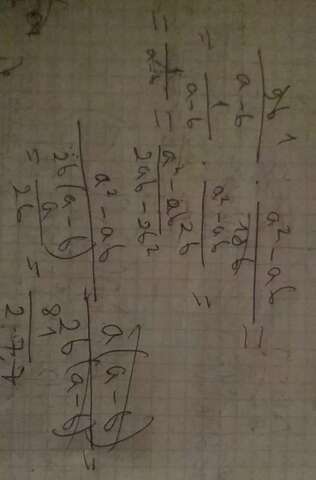 9b 1 / a-b · a²-ab / 18b =
= 1 / a-b · a²-ab / 2b =
= a²-ab / 2ab-2b²
a²-ab / 2b(a-b) = a(a-b) / 2b(a-b) =
= a / 2b = 81 / 2·7,7